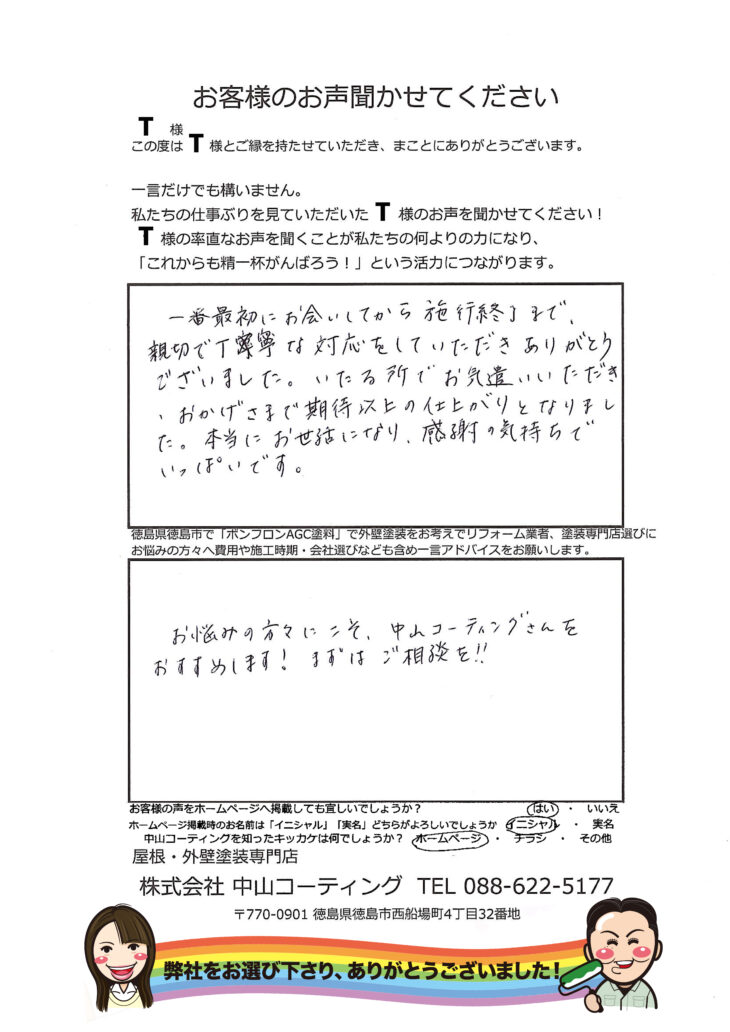 お客様のお声聞かせてください
T 様
この度は T 様とご縁を持たせていただき、まことにありがとうございます。
一言だけでも構いません。
私たちの仕事ぶりを見ていただいた T 様のお声を聞かせてください！
T 様の率直なお声を聞くことが私たちの何よりの力になり、
「これからも精一杯がんばろう！」という活力につながります。
一番最初にお会いしてから施行終了まで、
親切で丁寧な対応をしていただきありがとう
ございました。いたる所でお気遣いいただき
、おかげさまで期待以上の仕上がりとなりまし
た。本当にお世話になり、感謝の気持ちで
いっぱいです。
徳島県徳島市で「ボンフロンAGC塗料」で外壁塗装をお考えでリフォーム業者、塗装専門店選びに
お悩みの方々へ費用や施工時期・会社選びなども含め一言アドバイスをお願いします。
お悩みの方々にこそ、中山コーティングさんを
おすすめします！まずはご相談を!!
お客様の声をホームページへ掲載しても宜しいでしょうか？ はい ・ いいえ
ホームページ掲載時のお名前は「イニシャル」「実名」どちらがよろしいでしょうか イニシャル ・ 実名
中山コーティングを知ったキッカケは何でしょうか？ ホームページ ・ チラシ ・ その他
屋根・外壁塗装専門店
株式会社 中山コーティング TEL 088-622-5177
〒770-0901 徳島県徳島市西船場町4丁目32番地
弊社をお選び下さり、ありがとうございました！